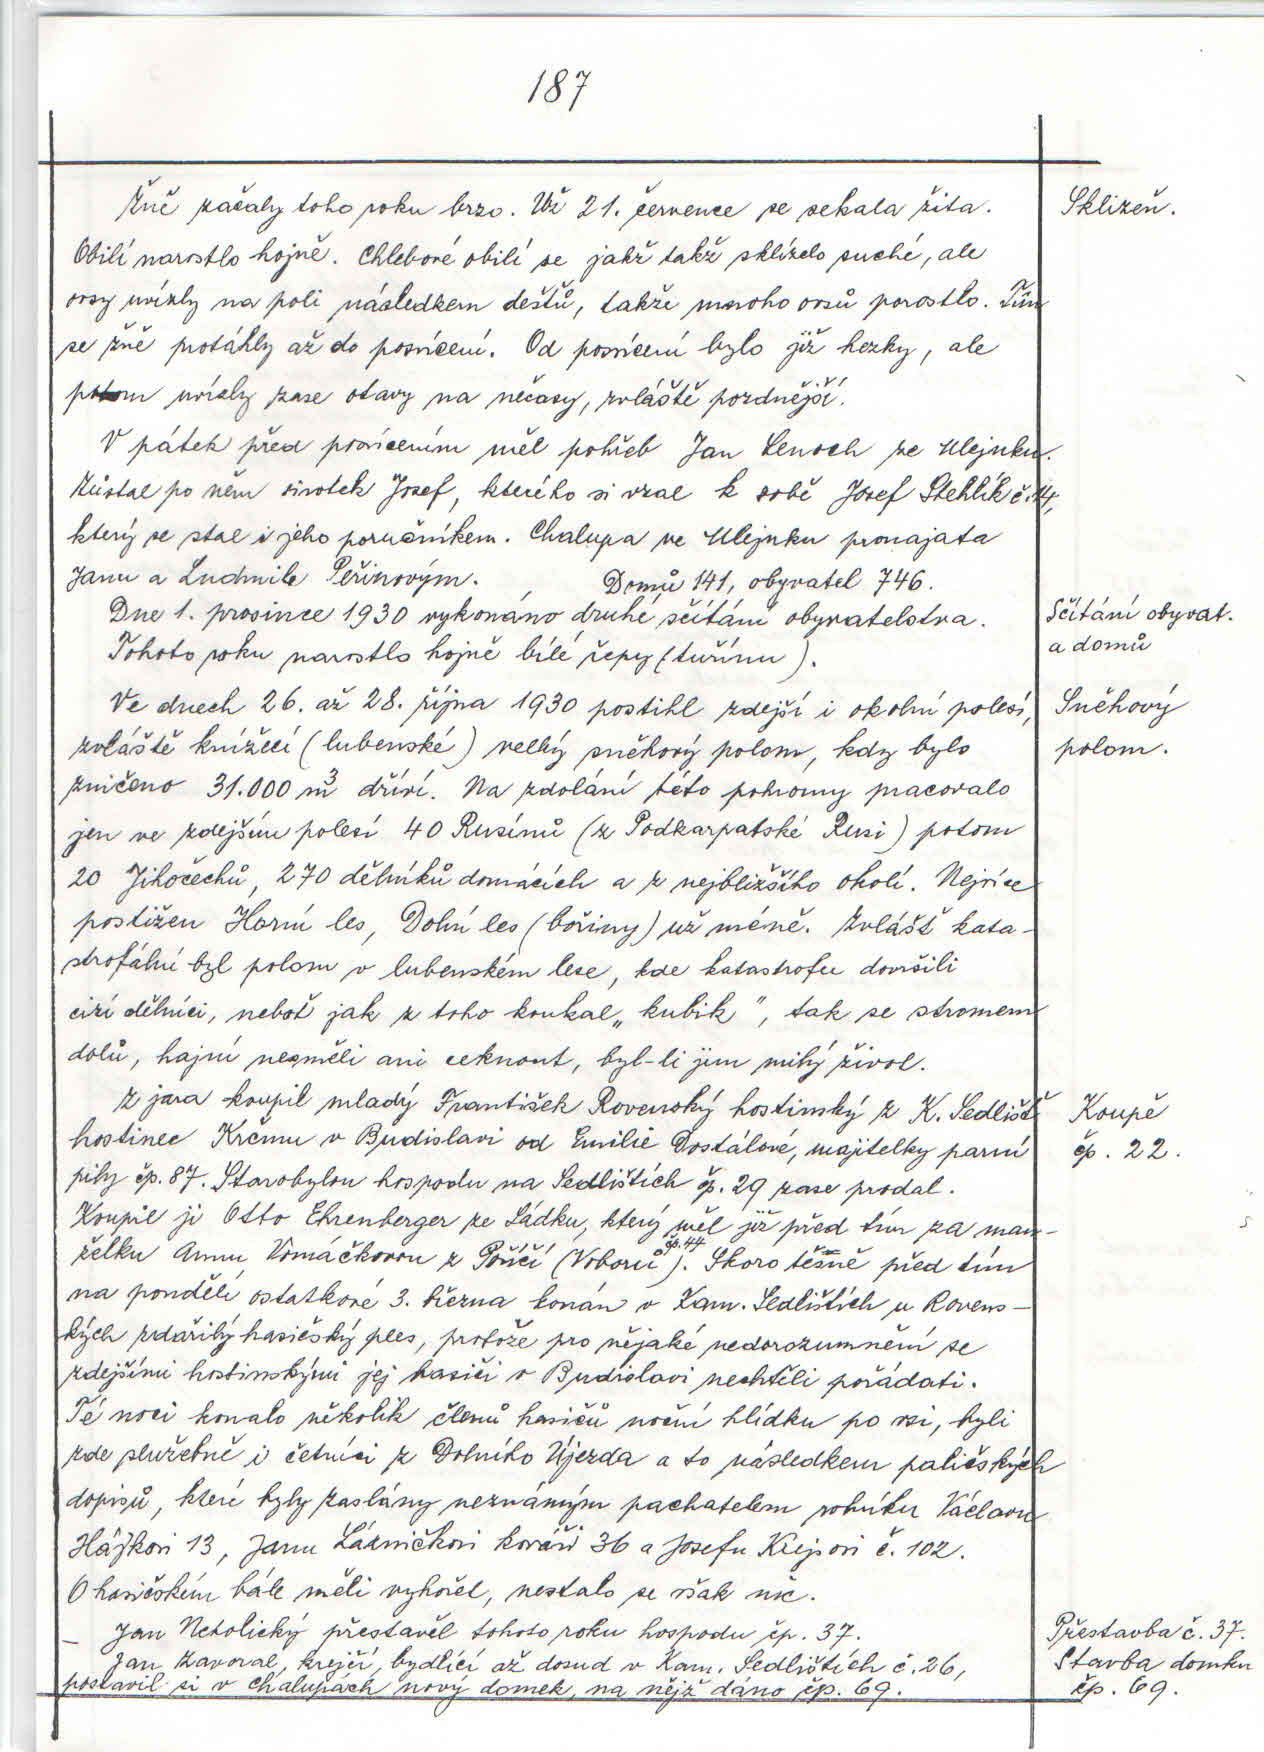 187
Žně začaly toho roku brzo. Už 21. července se sekala žita.
Sklizeň.
Obilí narostlo hojně. Chlebové obilí se jakž takž sklízelo suché, ale
ovsy uvízly na poli následkem dešťů, takže mnoho ovsů porostlo. Tím
se žně protáhly až do posvícení. Od posvícení bylo již hezky, ale
potom uvízly zase otavy na nečasy, zvláště pozdnější.
V pátek před posvícením měl pohřeb Jan Lenoch ze Ulejnku.
Zůstal po něm sirotek Josef, kterého si vzal k sobě Josef Stehlík č. 14,
který se stal i jeho poručníkem. Chalupa ve Ulejnku pronajata
Janu a Ludmile Peřinovým. Domů 141, obyvatel 746.
Dne 1. prosince 1930 vykonáno druhé sčítání obyvatelstva.
Sčítání obyvat.
a domů
Tohoto roku narostlo hojně bílé řepy (tuřínu).
Ve dnech 26. až 28. října 1930 postihl zdejší i okolní polesí,
Sněhový
zvláště knížecí (lubenské) velký sněhový polom, kdy bylo
polom.
zničeno 31.000 m³ dříví. Na zdolání této pohromy pracovalo
jen ve zdejším polesí 40 Rusínů (z Podkarpatské Rusi) potom
20 Jihočechů, 270 dělníků domácích a z nejbližšího okolí. Nejvíce
postižen Horní les, Dolní les (bořiny) už méně. Zvlášť kata-
strofální byl polom v lubenském lese, kde katastrofu dovršili
cizí dělníci, neboť jak z toho koukal „kubik", tak se stromem
dolů, hajní nesměli ani ceknout, byl-li jim milý život.
Z jara koupil mladý František Rovenský hostinský z K. Sedlišť
Koupě
hostinec Krčmu v Budislavi od Emilie Dostálové, majitelky parní
čp. 22.
pily čp. 87. Starobylou hospodu na Sedlištích čp. 29 zase prodal.
Koupil ji Otto Ehrenberger ze Sádku, který měl již před tím za man-
želku Annu Vomáčkovou z Poříčí (Voborů čp. 44). Skoro těsně před tím
na pondělí ostatkové 3. března konán v Kam. Sedlištích u Rovens-
kých zdařilý hasičský ples, protože pro nějaké nedorozumnění se
zdejšími hostinskými jej hasiči v Budislavi nechtěli pořádati.
Té noci konalo několik členů hasičů noční hlídku po vsi, byli
zde služebně i četníci z Dolního Újezda a to následkem paličských
dopisů, které byly zaslány neznámým pachatelem rolníku Václavu
Hájkovi 13, Janu Lázničkovi kováři 36 a Josefu Krejsovi č. 102.
O hasičském bále měli vyhořet, nestalo se však nic.
– Jan Netolický přestavěl tohoto roku hospodu čp. 37.
Přestavba č. 37.
Jan Zavoral, krejčí, bydlící až dosud v Kam. Sedlištích č. 26,
Stavba domku
postavil si v chalupách nový domek, na nějž dáno čp. 69.
čp. 69.